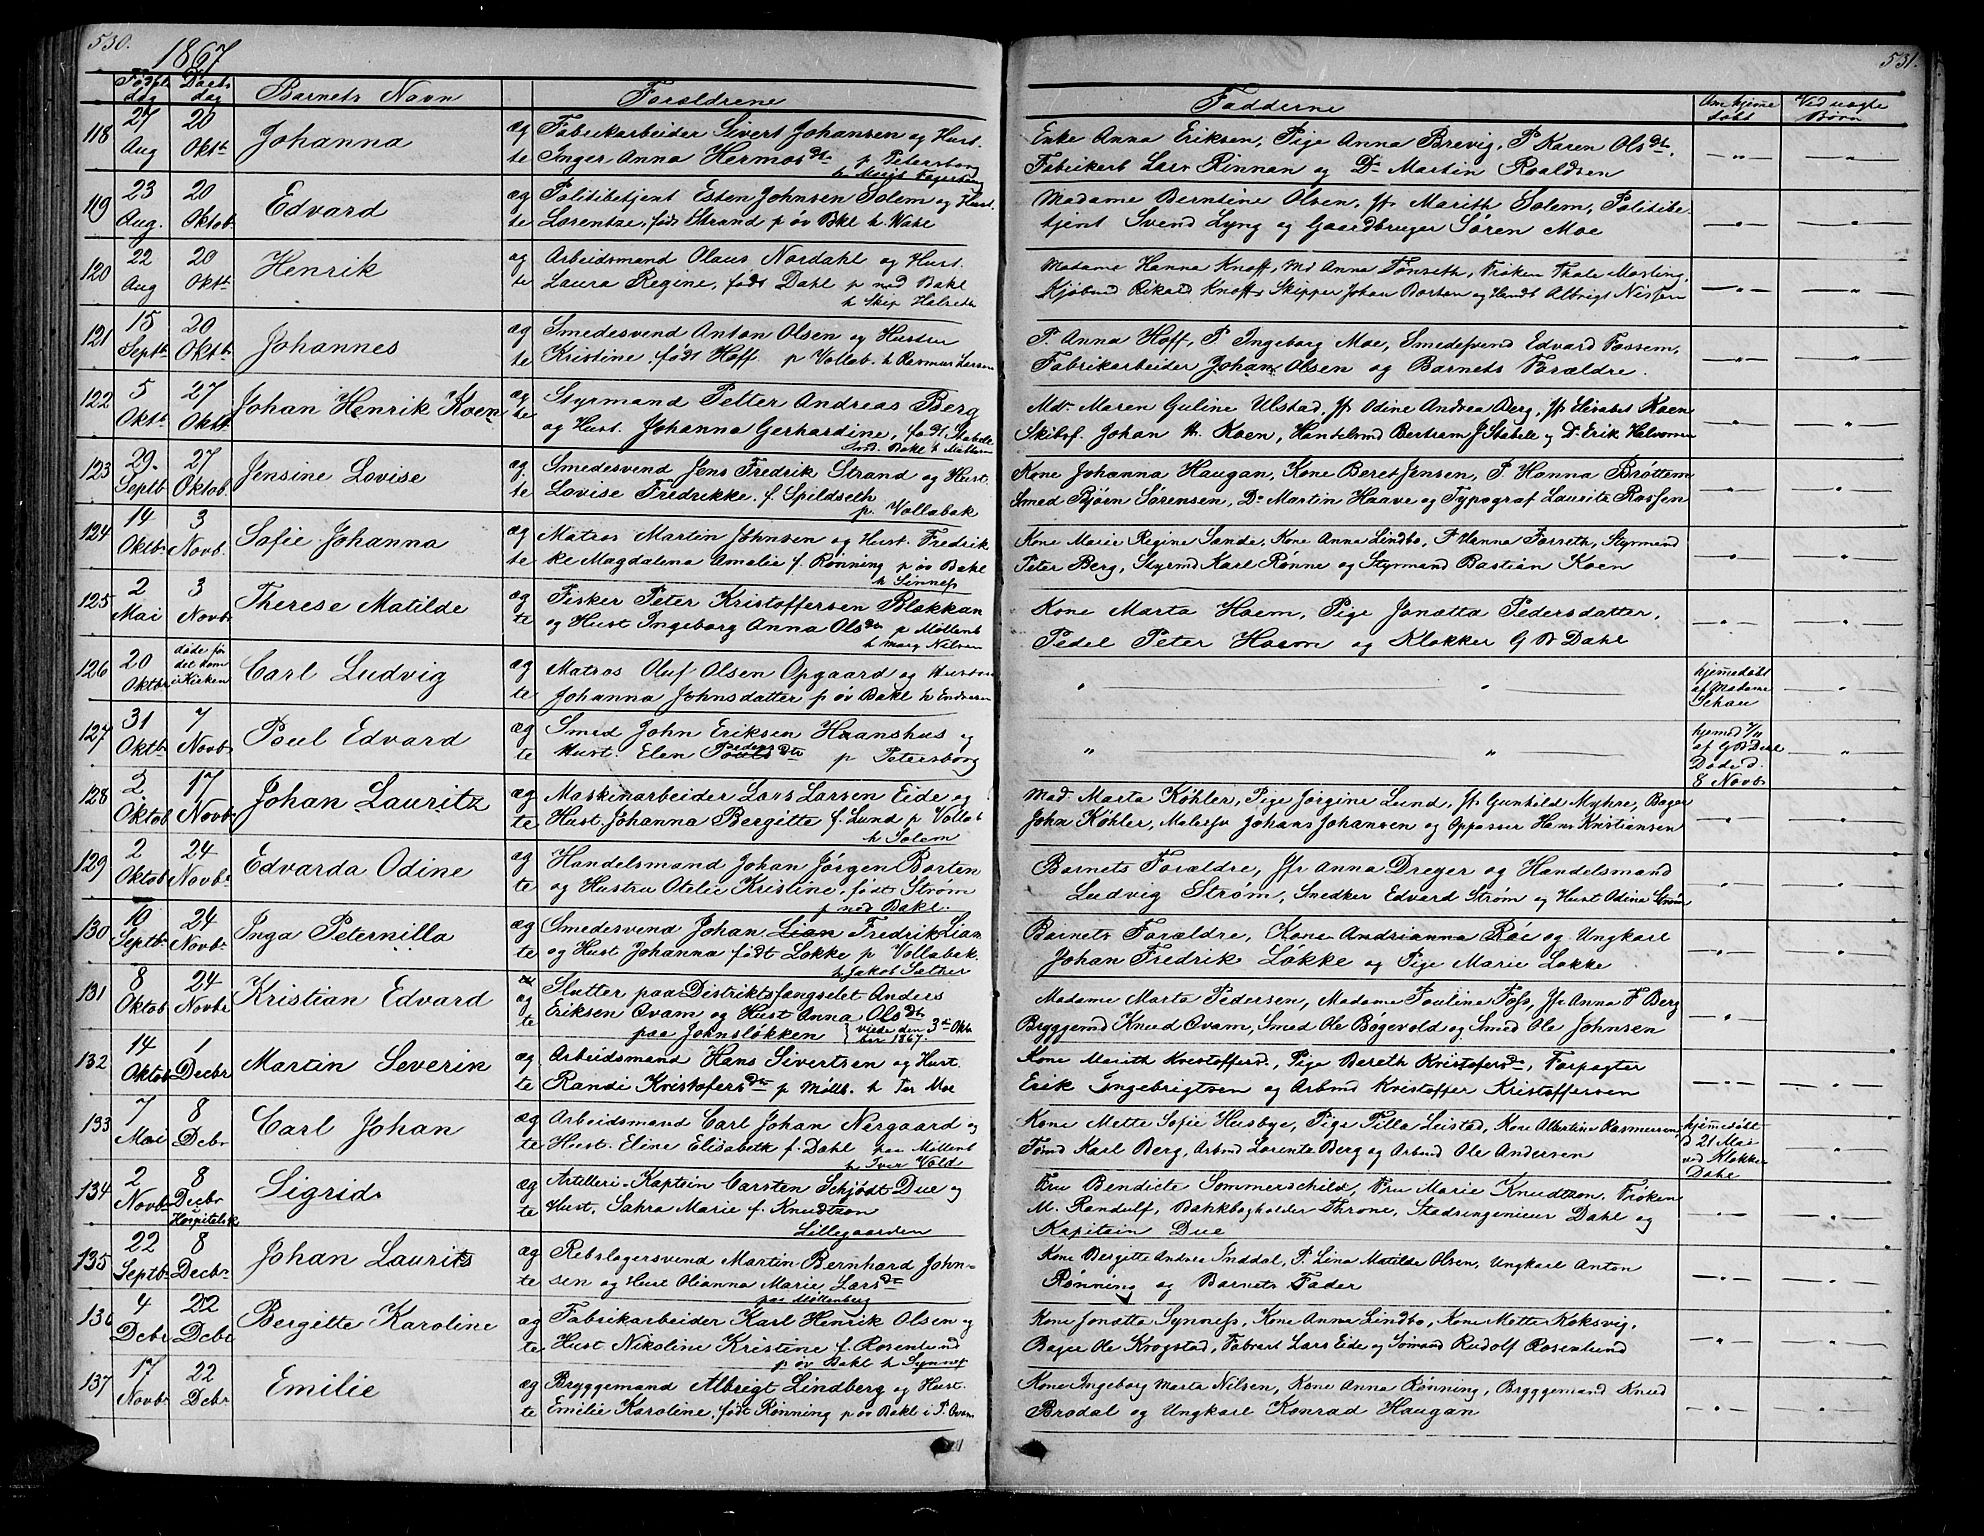 530.
1867
Födsl. dag
Daabs dag
Barnets Navn
Forældrene
118 27 Aug 20 Oktb Johanna ægte Fabrikarbeider Sivert Johansen og Hust.
Inger Anna Hermosdtr p Petersborg
h Marit Fagerhaug
119 23 Aug. 20 Oktob Edvard ægte Politibetjent Esten Johnsen Solem og Hust.
Lorentze, født Strand p öv Bakl h Wahl
120 22 Aug 20 Oktb Henrik ægte Arbeidsmand Olaus Nordahl og Hust.
Laura Regine, født Dahl p ned Bakl
h Skip Halseth
121 15 Septb 20 Oktb Johannes ægte Smedesvend Anton Olsen og Hustru
Kristine, født Hoff p Vollab. h Rasmus Larsen
122 5 Oktb 27 Oktb Johan Henrik Koen ægte Styrmand Petter Andreas Berg
og Hust. Johanna Gerhardine, født Stabell
ned. Bakl h
123 29. Septb 27 Oktob. Jensine Lovise ægte Smedesvend Jens Fredrik Strand og Hust.
Lovise Fredrikke, f. Spildseth
p. Vollabak
124 14 Oktb. 3 Novb. Sofie Johanna ægte Matros Martin Johnsen og Hust. Fredrik
ke Magdalena Amalie f. Rønning p öv Bakl
h Sinnes
125 2 Mai 3 Novb. Therese Matilde ægte Fisker Peter Kristoffersen Blakkan
og Hust Ingeborg Anna Olsdtr p Møllenb
h Marg Nilsen
126 20 Oktbr døde før det kom i Kirken Carl Ludvig ægte Matros Oluf Olsen Opgaard og Hustru
Johanna Johnsdatter p öv Bakl h Endresen
127 31 Oktb. 7 Novb. Paul Edvard ægte Smed John Eriksen Haanshus og
Hust. Elen Pedersdtr p Petersborg
128 2. Oktob 17 Novb. Johan Lauritz ægte Maskinarbeider Lars Larsen Eide og
Hust. Johanna Bergitte f. Lund p Vollab
h Solem
129 2 Oktob 24 Novbr Edvarda Odine ægte Handelsmand Johan Jörgen Borten
og Hustru Otelie Kristine, født Strøm
p ned Bakl.
130 19 Septb 24 Novbr Inga Peternilla ægte Smedesvend Johan Lian Fredrik Lian
og Hust Johanna født Løkke p Vollabak.
h Jakob Salter
131 8 Oktob 24 Novbr Kristian Edvard ægte Slutter paa Distriktsfængselet Anders
Eriksen Qvam og Hust Anna Olsdtr
paa Johnsløkken viede den 3die Okto
ber 1867.
132 14 Oktob 1 Decbr Martin Severin ægte Arbeidsmand Hans Sivertsen og Hust.
Randi Kristofersdtr p Møllb. h Tor Moe
133 7 Mai 8 Debr Carl Johan ægte Arbeidsmand Carl Johan Nergaard og
Hust. Eline Elisabeth f. Dahl paa Møllenb
h Iver Vold
134 2 Novb. 8 Decbr Hospitalsk Sigrid ægte Artilleri-Kaptein Carsten Schjödt Due og
Hust. Sahra Marie f. Knudtzon
Lillegaarden
135 22 Septb. 8 Decbr Johan Laurits ægte Rebslagersvend Martin Bernhard John-
sen og Hust Olianna Marie Larsdtr
paa Møllenberg
136 4 Debr 22 Debr Bergitte Karoline ægte Fabrikarbeider Karl Henrik Olsen og
Hust. Nikoline Kristine f. Rosenlund
p öv Bakl h Synnes
137 17 Novbr 22 Debr Emilie ægte Bryggemand Albrigt Lindberg og Hust.
Emilie Karoline, født Rønning p öv Bakl i P. Qvam
531.
Fadderne
Om hjemmedøbt
Ved uægte Børn
Enke Anna Eriksen, Pige Anna Brevig, P Karen Olsdtr,
Fabrikarb Lars Rinnan og Do Martin Roaldsen
Madame Berntine Olsen, Jfr Marith Solem, Politibe
tjent Svend Lyng og Gaardbruger Sören Moe
Madame Hanna Knoff, Md Anna Tønseth, Frøken Thale Mosling,
Kjøbmd Rikard Knoff, Skipper Johan Borten og Handl Albrigt Nissen
P. Anna Hoff, P Ingeborg Moe, Smedesvend Edvard Fossem,
Fabrikarbeider Johan Olsen og Barnets Forældre.
Md. Maren Guline Ulstad, Jfr Odine Andrea Berg, Jfr Elisabet Koen
Skibsf. Johan H. Koen, Handelsmd Bertram J Stabell og Do Erik Halvorsen
Kone Johanna Haugan, Kone Beret Jensen, P. Hanna Brøttem
Smed Björn Sørensen, Do Martin Haave og Typograf Laurits Rossen
Kone Marie Regine Sande, Kone Anna Lindbo, P Hanna Forseth, Styrmand
Peter Berg, Styrmd Karl Rønne og Styrmand Bastian Koen
Kone Marta Haem, Pige Jonetta Pedersdatter,
Pedel Peter Haem og Klokker G B Dahl
hjemmedøbt
af Madame
Schau
hjemd 7/11
af G B Dahl
Døde d.
8 Novbr
Mad. Marta Köhler, Pige Jörgine Lund, Jfr Gunhild Myhre, Bager
John Köhler, Malersv Johans Johansen og Oppasser Hans Kristiansen
Barnets Forældre, Jfr Anna Dreyer og Handelsmand
Ludvig Strøm, Snedker Edvard Strøm og Hust Odina Strøm
Barnets Forældre, Kone Andrianna Röe og Ungkarl
Johan Fredrik Løkke og Pige Marie Løkke
Madame Marta Pedersen, Madame Pouline Foss, Jfr Anna F Berg
Bryggemd Knud Qvam, Smed Ole Bøgevold og Smed Ole Johnsen
Kone Marith Kristoffersd., Pige Bereth Kristofersdtr, Forpagter
Erik Ingebrigtsen og Arbmd Kristoffer Kristoffersen
Kone Mette Sofie Husbye, Pige Pilla Leistad, Kone Albertine Rasmussen,
Tømd Karl Berg, Arbmd Lorents Berg og Arbmd Ole Andersen
hjemmedøbt
d 21 Mai
ved Klokker
Dahl
Fru Bendicte Sommerschild, Fru Marie Knudtzon, Frøken
M. Randulf, Bankbogholder Throne, Stadsingenieur Dahl og
Kapitain Due
Kone Bergitte Andrea Inddal, P. Lina Matilde Olsen, Ungkarl Anton
Rønning og Barnets Fader
Kone Jonetta Synness, Kone Anna Lindbo, Kone Mette Koksvig,
Bager Ole Krogstad, Fabrarb Lars Eide og Sømand Rudolf Rosenlund
Kone Ingeborg Marta Nilsen, Kone Anna Rønning, Bryggemand Knud
Brodal og Ungkarl Konrad Haugan